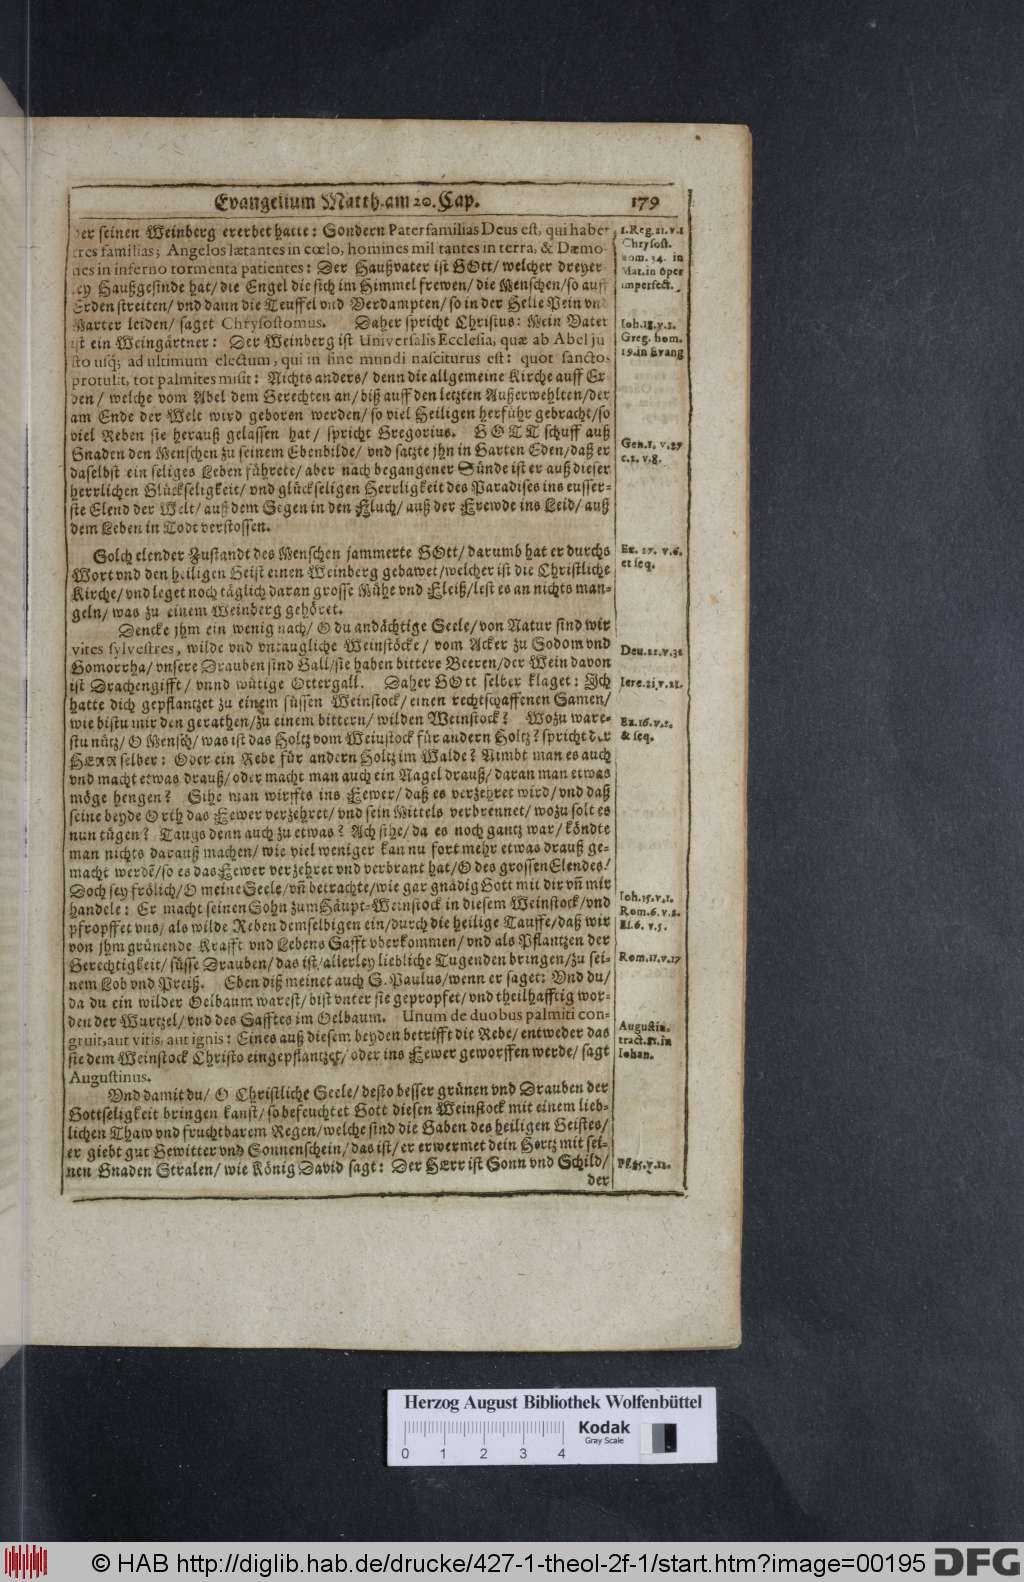 Evangelium Matth. am 20. Cap. 179
der seinen Weinberg ererbet hatte: Sondern Pater familias Deus est, qui habet
tres familias; Angelos lætantes in cœlo, homines militantes in terra, & Dæmo-
nes in inferno tormenta patientes: Der Haußvater ist GOtt/ welcher dreyer-
ley Haußgesinde hat/ die Engel die sich im Himmel frewen/ die Menschen/ so auff
Erden streiten/ vnd dann die Teuffel vnd Verdampten/ so in der Helle Pein vnd
Marter leiden/ saget Chrysostomus. Daher spricht Christus: Mein Vater
ist ein Weingärtner: Der Weinberg ist Universalis Ecclesia, quæ ab Abel ju
sto usq; ad ultimum electum, qui in fine mundi nasciturus est: quot sancto-
protulit, tot palmites misit: Nichts anders/ denn die allgemeine Kirche auff Er
den/ welche vom Abel dem Gerechten an/ biß auff den letzten Außerwehlten/ der
am Ende der Welt wird geboren werden/ so viel Heiligen herführ gebracht/ so
viel Reben sie herauß gelassen hat/ spricht Gregorius. GOTT schuff auß
Gnaden den Menschen zu seinem Ebenbilde/ vnd satzte jhn in Garten Eden/ daß er
daselbst ein seliges Leben führete/ aber nach begangener Sünde ist er auß dieser
herrlichen Glückseligkeit/ vnd glückseligen Herrligkeit des Paradises ins eusser-
ste Elend der Welt/ auß dem Segen in den Fluch/ auß der Frewde ins Leid/ auß
dem Leben in Tode verstossen.
Solch elender Zustandt des Menschen jammerte GOtt/ darumb hat er durchs
Wort vnd den heiligen Geist einen Weinberg gebawet/ welcher ist die Christliche
Kirche/ vnd leget noch täglich daran grosse Mühe vnd Fleiß/ lest es an nichts man-
geln/ was zu einem Weinberg gehöret.
Dencke jhm ein wenig nach/ O du andächtige Seele/ von Natur sind wir
vites sylvestres, wilde vnd vntaugliche Weinstöcke/ vom Acker zu Sodom vnd
Gomorrha/ vnsere Drauben sind Gall/ sie haben bittere Beeren/ der Wein davon
ist Drachengifft/ vnnd wütige Ottergall. Daher GOtt selber klaget: Ich
hatte dich gepflantzet zu einem süssen Weinstock/ einen rechtschaffenen Samen/
wie bistu mir den gerathen/ zu einem bittern/ wilden Weinstock? Wozu ware-
stu nütz/ O Mensch/ was ist das Holtz vom Weinstock für andern Holtz? spricht der
HERR selber: Oder ein Rebe für andern Holtz im Walde? Nimbt man es auch
vnd macht etwas drauß/ oder macht man auch ein Nagel drauß/ daran man etwas
möge hengen? Sihe man wirffts ins Fewer/ daß es verzehret wird/ vnd daß
seine beyde Orth das Fewer verzehret/ vnd sein Mittels verbrennet/ wozu solt es
nun tügen? Taugs denn auch zu etwas? Ach sihe/ da es noch gantz war/ köndte
man nichts darauß machen/ wie viel weniger kan nu fort mehr etwas drauß ge-
macht werdẽ/ so es das Fewer verzehret vnd verbrant hat/ O des grossen Elendes!
Doch sey frölich/ O meine Seele/ vñ betrachte/ wie gar gnädig Gott mit dir vñ mir
handele: Er macht seinen Sohn zum Häupt-Weinstock in diesem Weinstock/ vnd
pfropffet vns/ als wilde Reben demselbigen ein/ durch die heilige Tauffe/ daß wir
von jhm grünende Krafft vnd Lebens Safft vberkommen/ vnd als Pflantzen der
Gerechtigkeit/ süsse Drauben/ das ist/ allerley liebliche Tugenden bringen/ zu sei-
nem Lob vnd Preiß. Eben diß meinet auch S. Paulus/ wenn er saget: Vnd du/
da du ein wilder Oelbaum warest/ bist vnter sie gepropfet/ vnd theilhafftig wor-
den der Wurtzel/ vnd des Safftes im Oelbaum. Unum de duobus palmiti con-
gruit, aut vitis, aut ignis: Eines auß diesem beyden betrifft die Rebe/ entweder das
sie dem Weinstock Christo eingepflantzet/ oder ins Fewer geworffen werde/ sagt
Augustinus.
Vnd damit du/ O Christliche Seele/ desto besser grünen vnd Drauben der
Gottseligkeit bringen kanst/ so befeuchtet Gott diesen Weinstock mit einem lieb-
lichen Thaw vnd fruchtbarem Regen/ welche sind die Gaben des heiligen Geistes/
er giebt gut Gewitter vnd Sonnenschein/ das ist/ er erwermet dein Hertz mit sei-
nen Gnaden Stralen/ wie König David sagt: Der HErr ist Sonn vnd Schild/
der
1. Reg. 21. v. 1
Chrysost.
hom. 34. in
Mat. in oper
imperfect.
Joh. 15. v. 1.
Greg. hom.
19. in Evang
Gen. 1. v. 27
c. 2. v. 8.
Ez. 17. v. 6.
et seq.
Deu. 32. v. 32
Jere. 2. v. 21.
Ez. 15. v. 2.
& seq.
Joh. 15. v. 1.
Rom. 6. v. 5.
Rom. 11. v. 17
Augustin.
tract. 81. in
Johan.
Herzog August Bibliothek Wolfenbüttel
Kodak
Gray Scale
0 1 2 3 4
© HAB http://diglib.hab.de/drucke/427-1-theol-2f-1/start.htm?image=00195 DFG